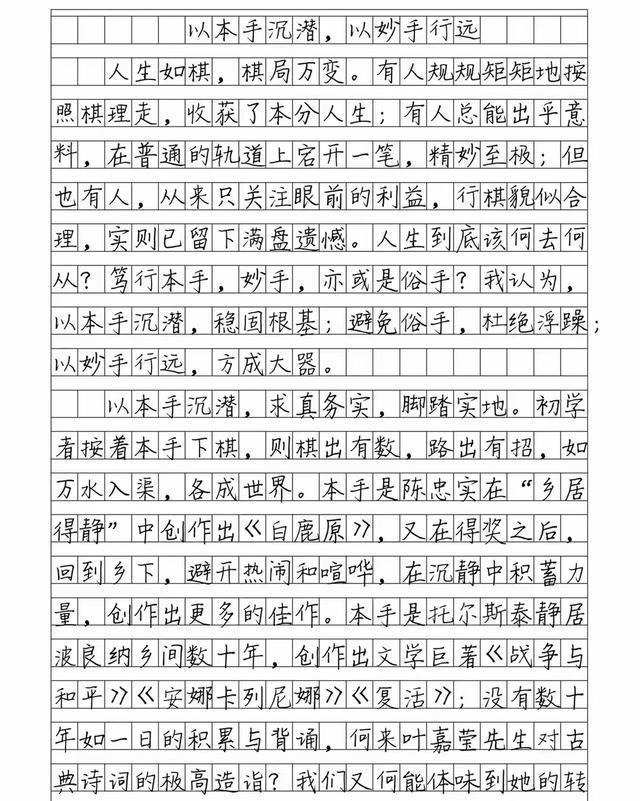 以本手沉潜，以妙手行远
人生如棋，棋局万变。有人规规矩矩地按
照棋理走，收获了本分人生；有人总能出乎意
料，在普通的轨道上宕开一笔，精妙至极；但
也有人，从来只关注眼前的利益，行棋貌似合
理，实则已留下满盘遗憾。人生到底该何去何
从？笃行本手，妙手，亦或是俗手？我认为，
以本手沉潜，稳固根基；避免俗手，杜绝浮躁；
以妙手行远，方成大器。
以本手沉潜，求真务实，脚踏实地。初学
者按着本手下棋，则棋出有数，路出有招，如
万水入渠，各成世界。本手是陈忠实在“乡居
得静”中创作出《白鹿原》，又在得奖之后，
回到乡下，避开热闹和喧哗，在沉静中积蓄力
量，创作出更多的佳作。本手是托尔斯泰静居
波良纳乡间数十年，创作出文学巨著《战争与
和平》《安娜卡列尼娜》《复活》；没有数十
年如一日的积累与背诵，何来叶嘉莹先生对古
典诗词的极高造诣？我们又何能体味到她的转